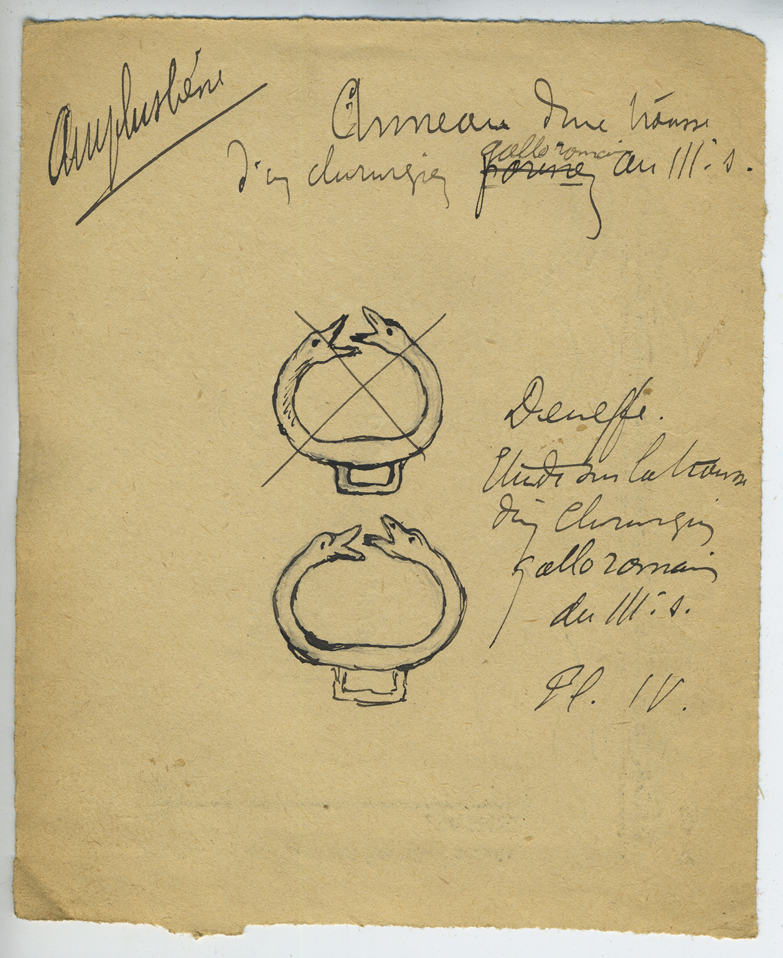 Amphisbène
Anneau d'une trousse
gallo romain
d'un chirurgien au III: s.
Deneffe.
Etude sur la trousse
d'un Chirurgien
gallo romain
du III: s.
Pl. IV.